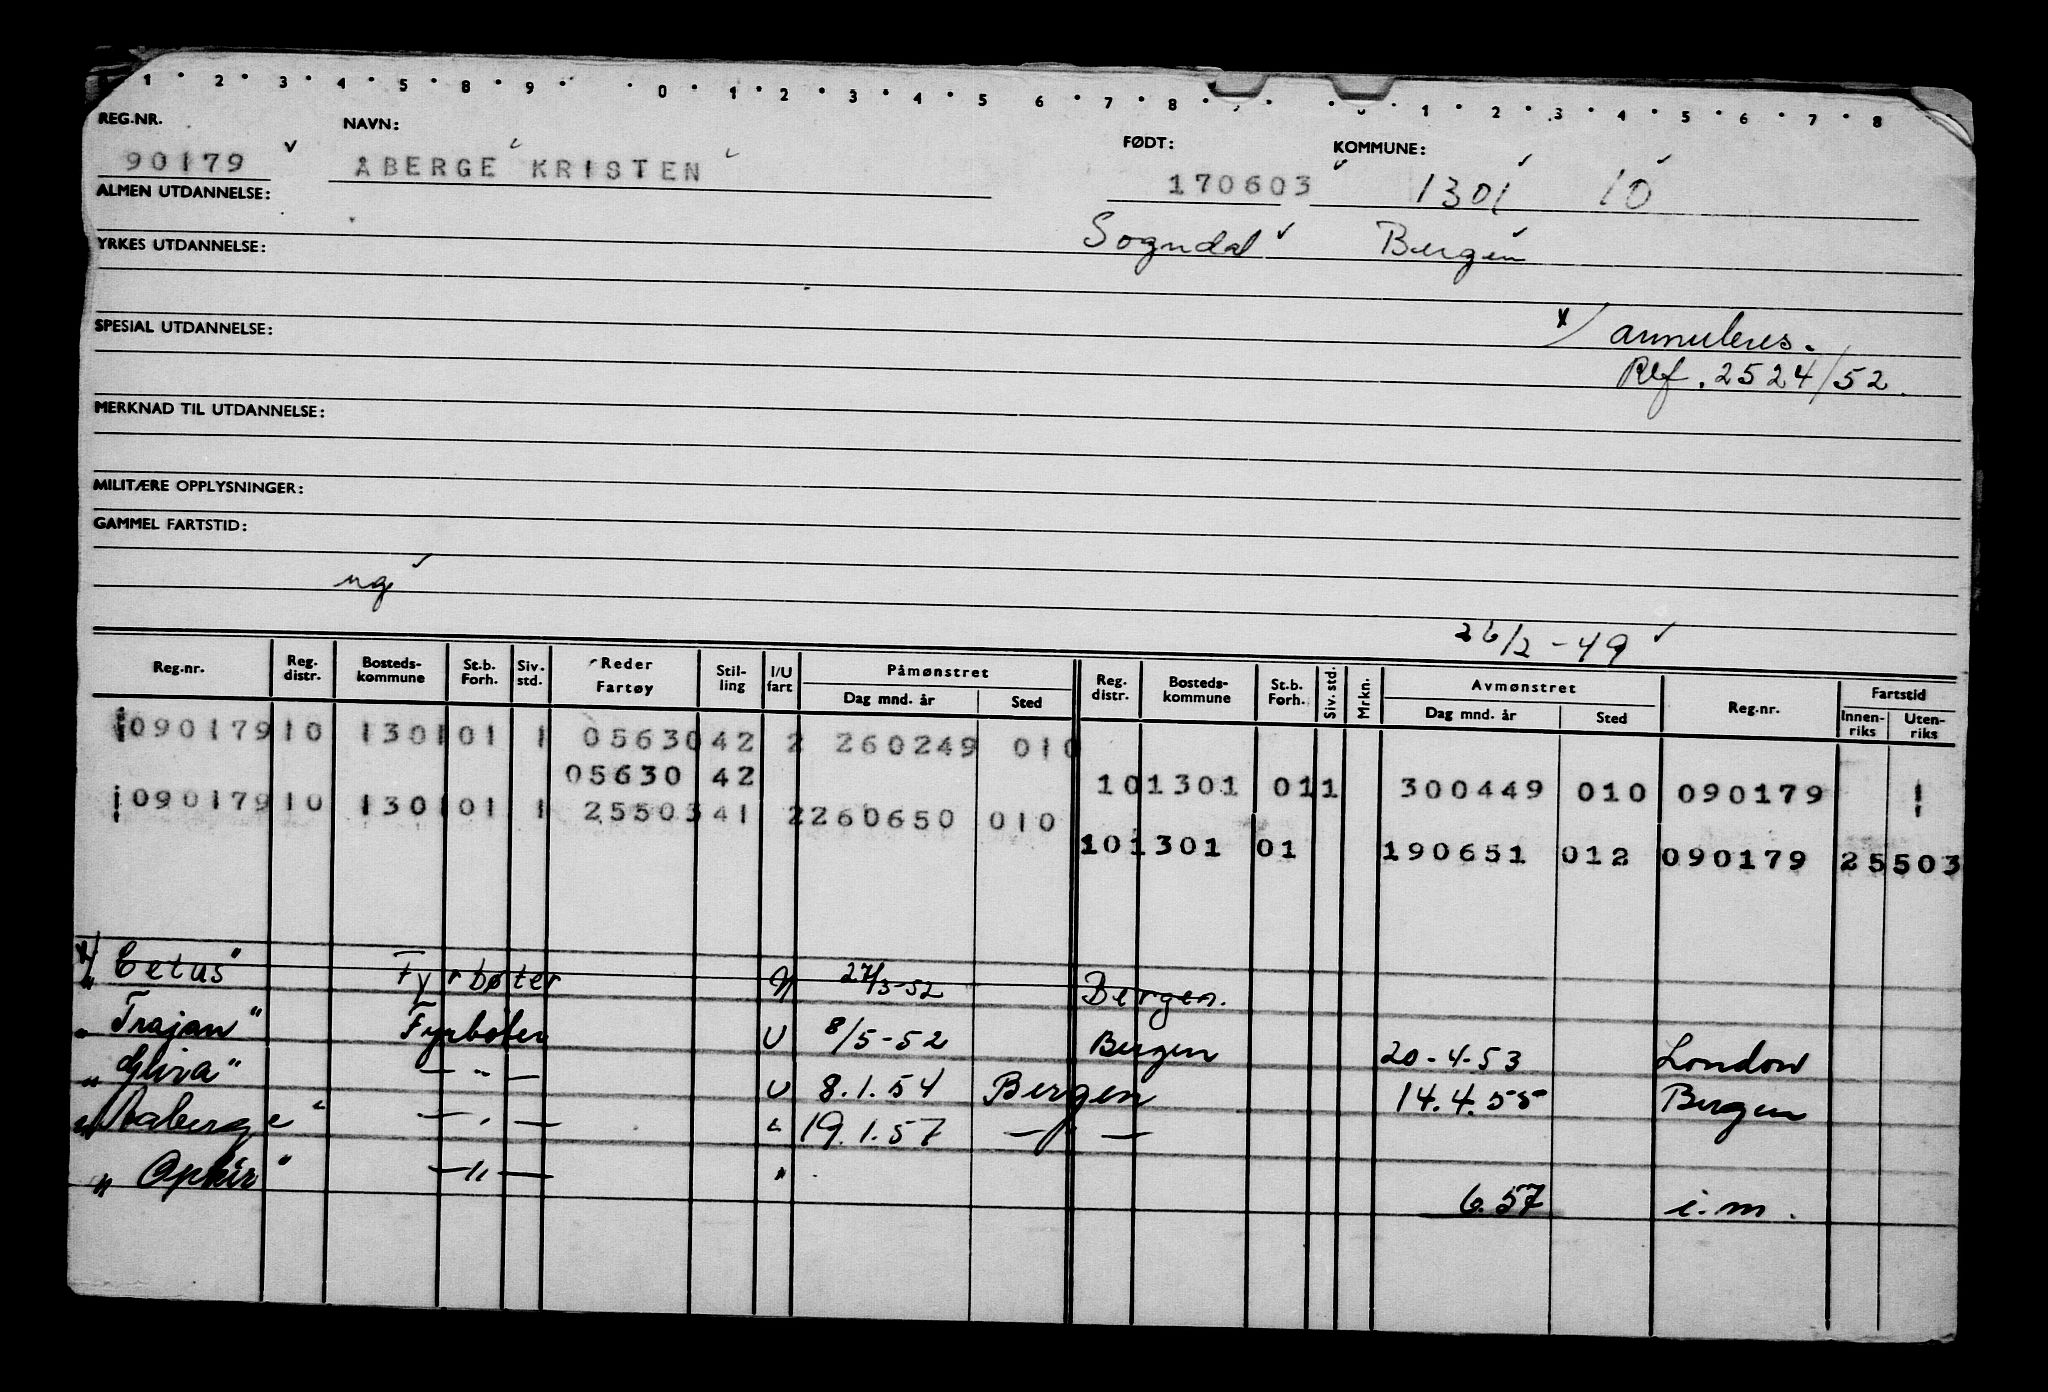 1 2 3 4 5 8 9 0 1 2 3 4 5 6 7 8 1 2 3 4 5 6 7 8
REG.NR. NAVN: FØDT: KOMMUNE:
90179 ÅBERGE KRISTEN 170603 1301 10
ALMEN UTDANNELSE:
Sogndal Bergen
YRKES UTDANNELSE:
x/ annuleres.
SPESIAL UTDANNELSE:
Ref. 2524/52.
MERKNAD TIL UTDANNELSE:
MILITÆRE OPPLYSNINGER:
GAMMEL FARTSTID:
26/2-49
Reg.nr. Reg. distr. Bosteds-kommune St.b. Forh. Siv. std. Reder Fartøy Stil-ling I/U fart Påmønstret Reg. distr. Bosteds-kommune St.b. Forh. Siv. std. Mrkn. Avmønstret Reg.nr. Fartstid
Dag mnd. år Sted Dag mnd. år Sted Innen-riks Uten-riks
09017910 130101 1 0563042 2 260249 010
05630 42 101301 011 300449 010 090179
09017910 130101 1 2550341 2260650 010
101301 01 190651 012 090179 25503
x/ "Cetus" Fyrbøter 27/3-52 Bergen.
"Trajan" Fyrbøter U 8/5-52 Bergen 20-4-53 London
"Glira" — " — U 8.1.54 Bergen 14.4.55 Bergen
"Aaberge" — " — " 19.1.57 — " —
"Ophir" — " — " 6.57 i.m.